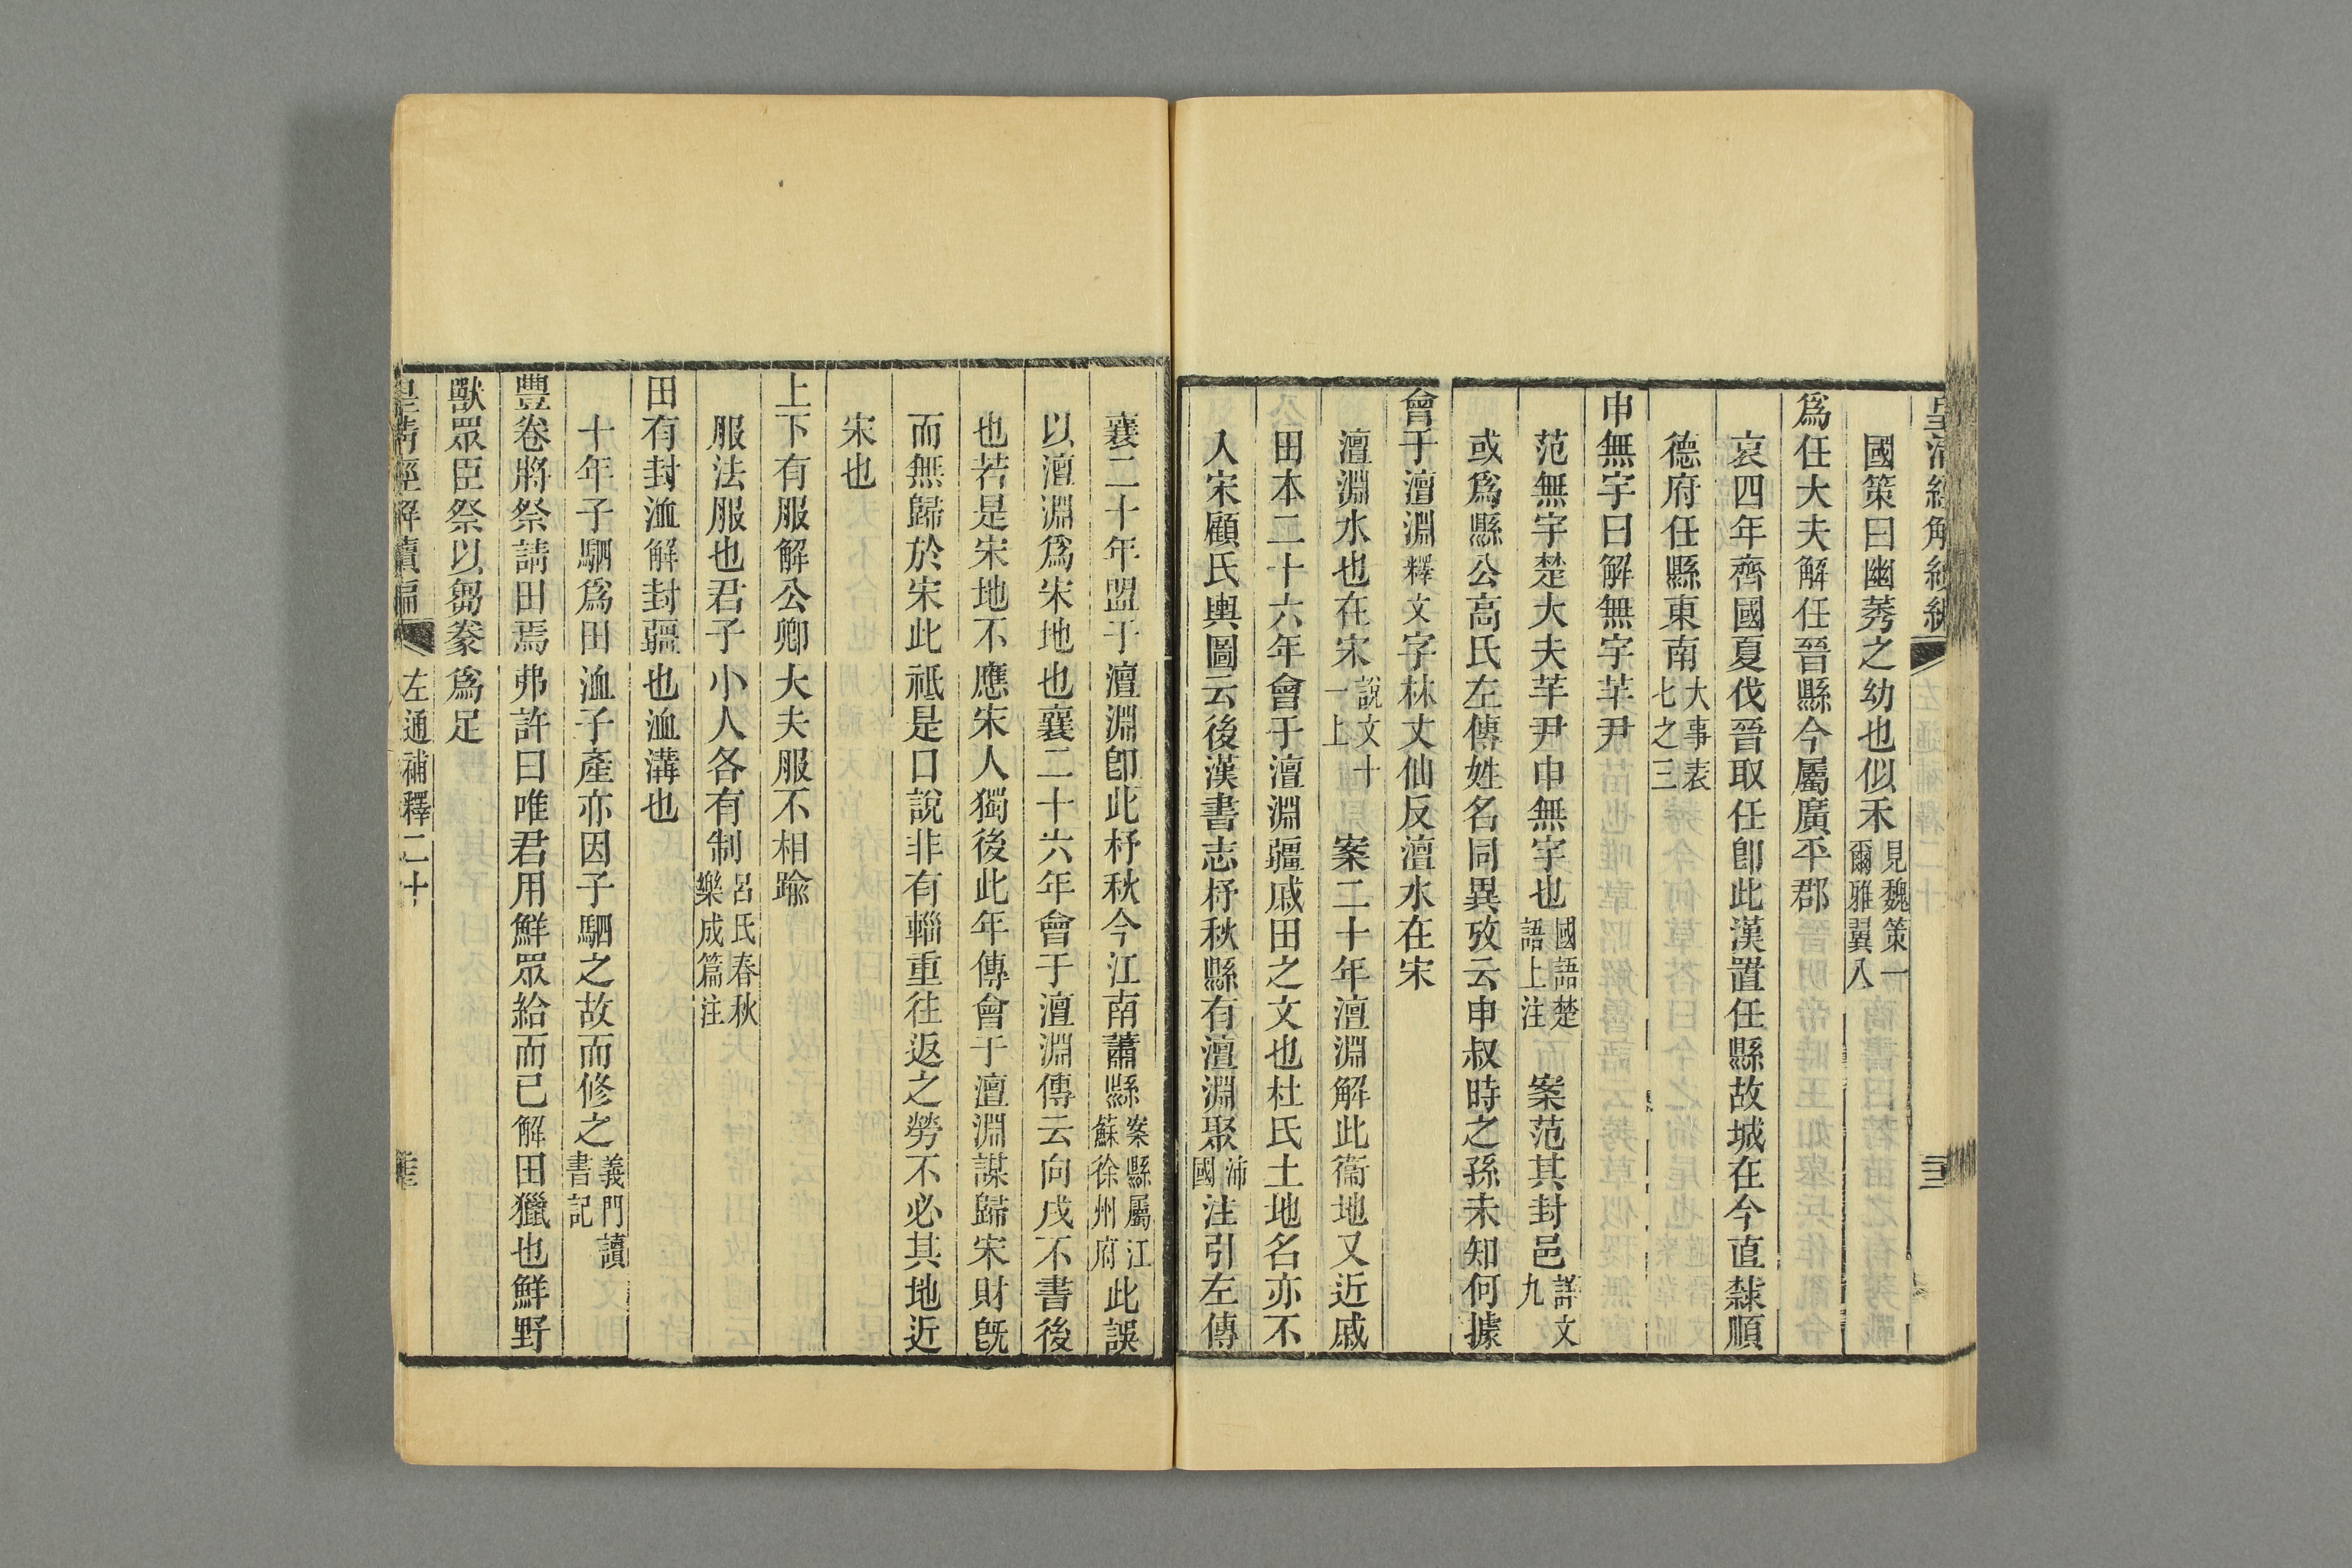 皇清經解續編
國策曰幽莠之幼也似禾見魏策一爾雅翼八
爲任大夫解任晉縣今屬廣平郡
哀四年齊國夏伐晉取任卽此漢置任縣故城在今直隸順
德府任縣東南大事表七之三
申無宇曰解無宇芊尹
范無宇楚大夫芊尹申無宇也國語楚語上注案范其封邑詳文九
或爲縣公高氏左傳姓名同異攷云申叔時之孫未知何據
會于澶淵釋文字林丈仙反澶水在宋
澶淵水也在宋說文十一上案二十年澶淵解此衞地又近戚
田本二十六年會于澶淵疆戚田之文也杜氏土地名亦不
人宋顧氏輿圖云後漢書志杼秋縣有澶淵聚沛國注引左傳
襄二十年盟于澶淵卽此杼秋今江南蕭縣案縣屬江蘇徐州府此誤
以澶淵爲宋地也襄二十六年會于澶淵傳云向戌不書後
也若是宋地不應宋人獨後此年傳會于澶淵謀歸宋財旣
而無歸於宋此祗是口說非有輜重往返之勞不必其地近
宋也
上下有服解公卿大夫服不相踰
服法服也君子小人各有制呂氏春秋樂成篇注
田有封洫解封疆也洫溝也
十年子駟爲田洫子產亦因子駟之故而修之義門讀書記
豐卷將祭請田焉弗許曰唯君用鮮眾給而已解田獵也鮮野
獸眾臣祭以芻豢爲足
皇淸經解續編 左通補釋二十